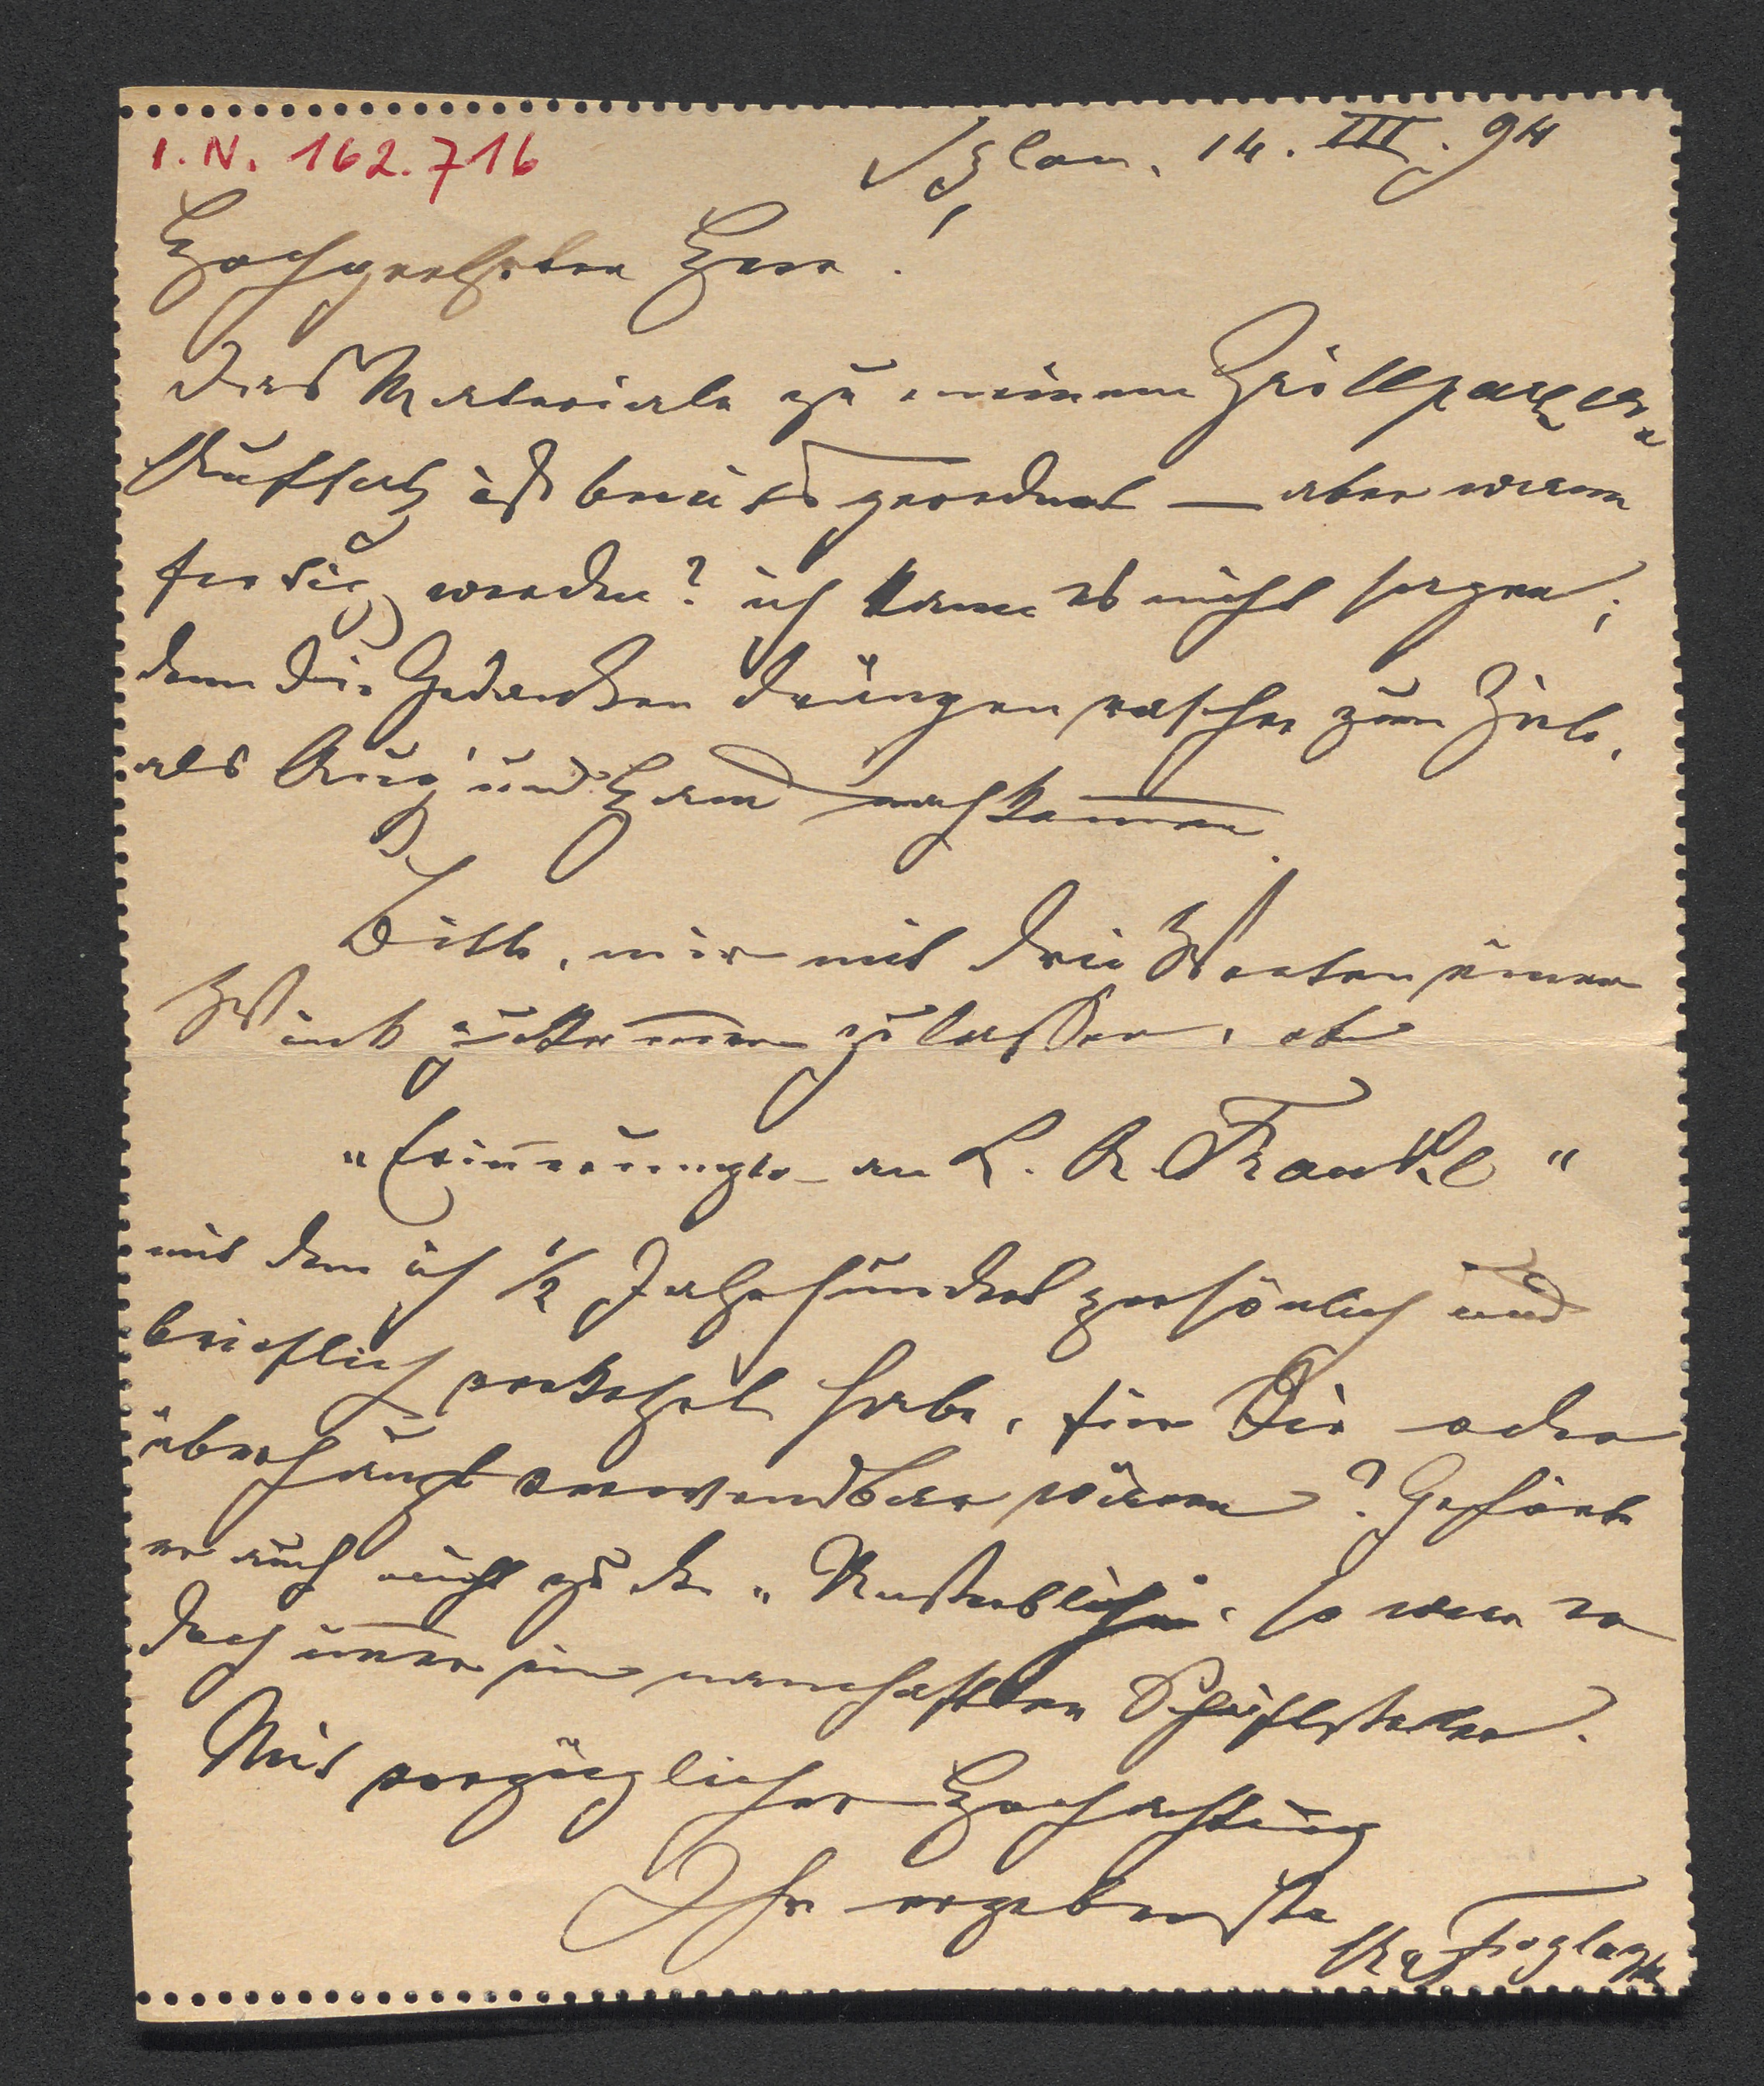 I. N. 162.716
Iglau, 14. III. 94
Hochgeehrter Herr!
Das Materiale zu meinem Grillparzer-
Aufsatz ist bereits geordnet — aber wann
fertig werden? ich kann es nicht sagen;
denn die Gedanken drängen rascher zum Ziele,
als Aug' und Hand nachkommen.
Bitte, mir mit drei Worten einen
Wink zukommen zu lassen, ob
"Erinnerungen an L. A. Frankl"
mit dem ich 1/2 Jahrhundert persönlich und
brieflich verkehrt habe, für Sie oder
überhaupt verwendbar wären? Gehörte
er auch nicht zu den "Unsterblichen" so war er
doch immer ein namhafter Schriftsteller.
Mit vorzüglicher Hochachtung
Ihr ergebenster